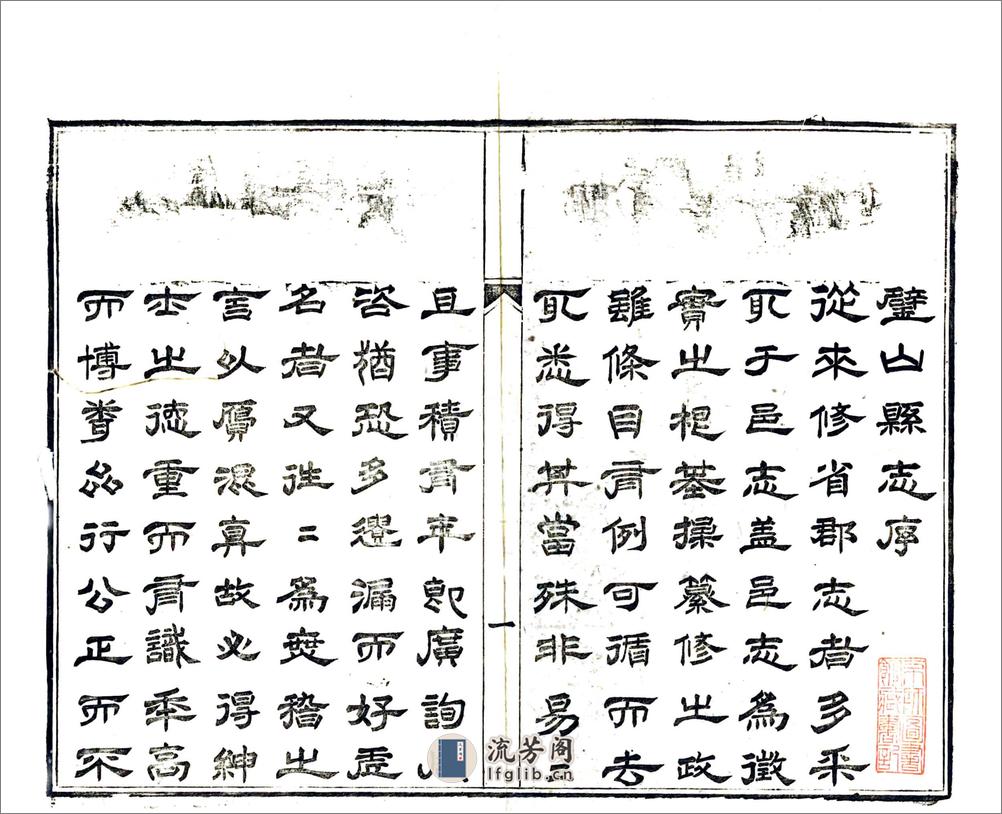 璧山縣志序
從來修省郡志者多采
取于邑志盖邑志為徵
實之根基操纂修之政
雖條目有例可循而去
取悉得其當殊非易
一
且事積有年即廣詢
咨猶恐多遺漏而好虛
名者又往二為無稽之
言以贋混真故必得紳
士之德重而有識年高
而博學品行公正而不
流芳阁
lfglib.cn